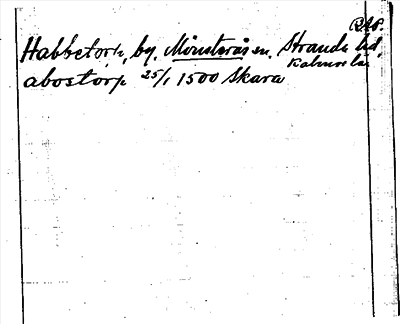 RAP.
Habbetorp, by. Mönsterås sn. Stranda hd,
Kalmar län
abostorp 25/1 1500 Skara